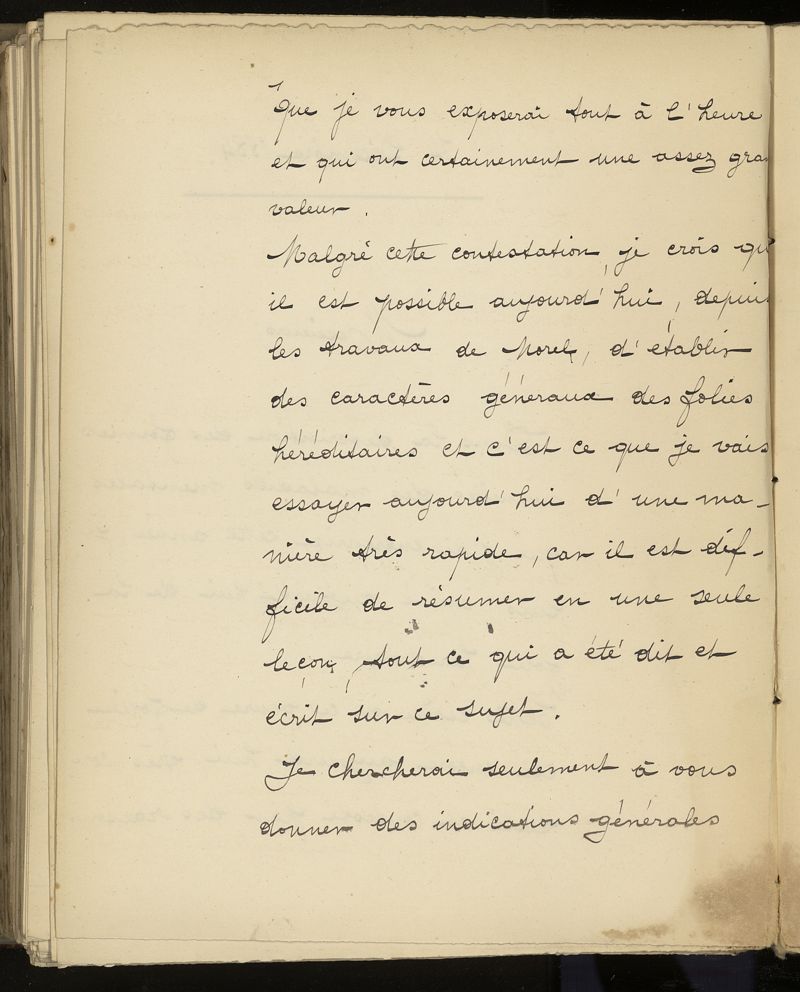 que je vous exposerai tout à l'heure
et qui ont certainement une assez gran
valeur.
Malgré cette contestation, je crois qu'
il est possible aujourd'hui, depuis
les travaux de Morel, d'établir
des caractères généraux des folies
héréditaires et c'est ce que je vais
essayer aujourd'hui d'une ma-
nière très rapide, car il est dif-
ficile de résumer en une seule
leçon, tout ce qui a été dit et
écrit sur ce sujet.
Je chercherai seulement à vous
donner des indications générales